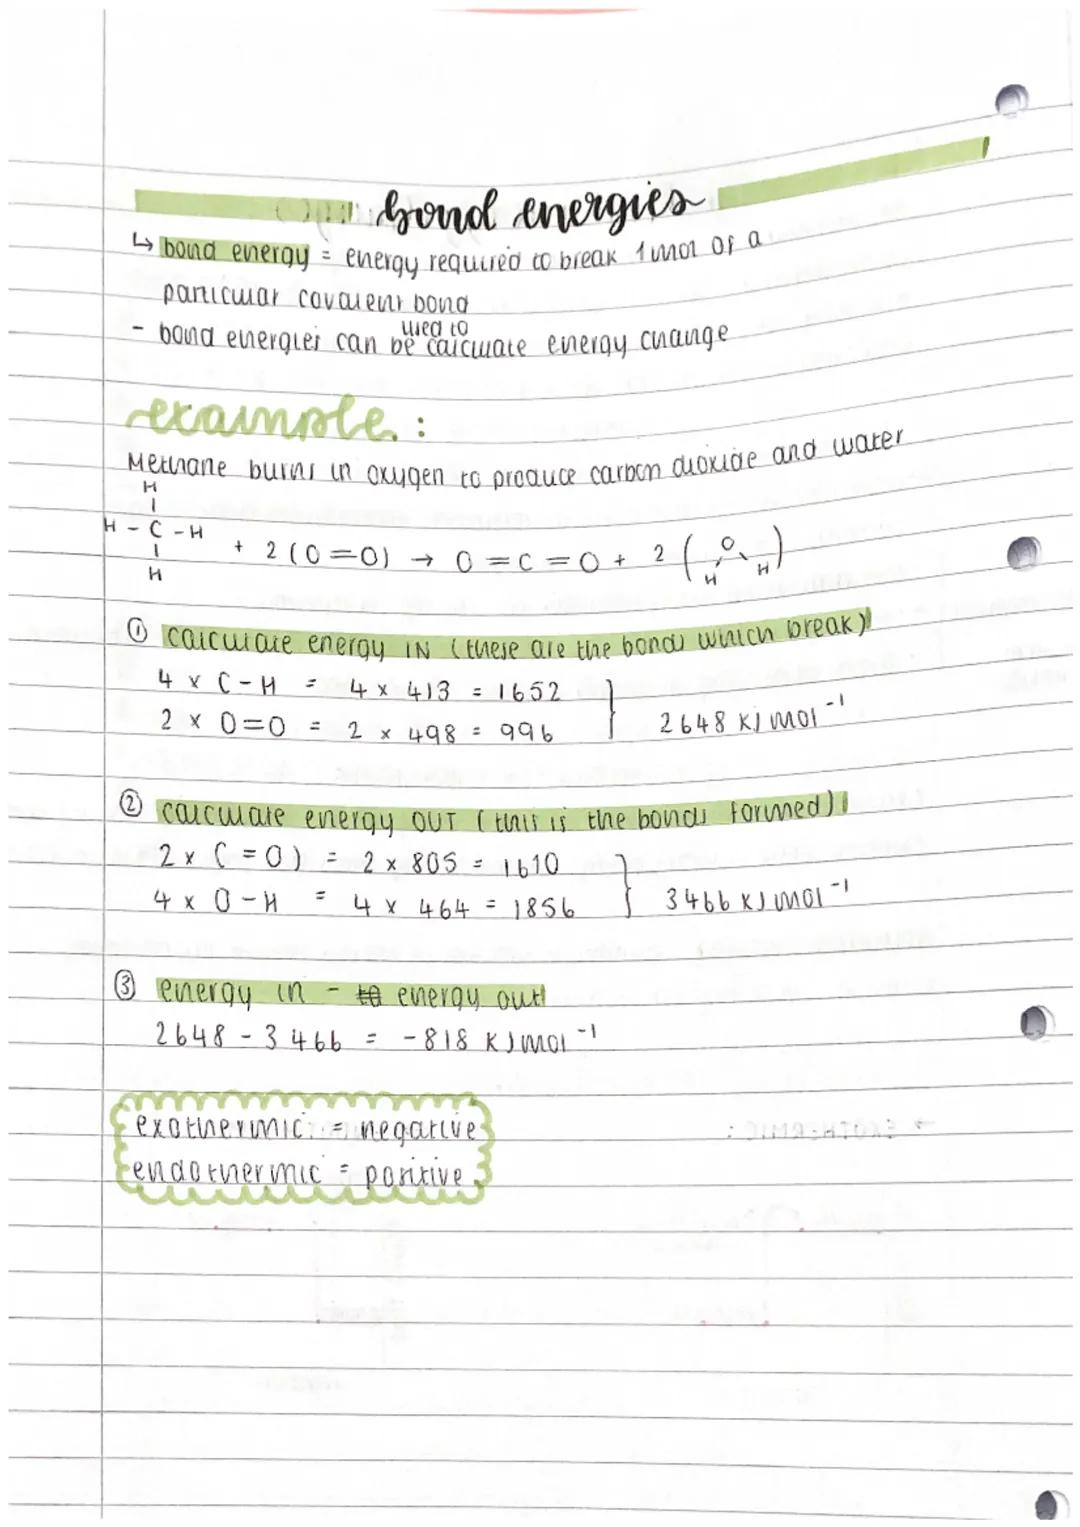 bond energies
↳ bond energy = energy required to break 1 mol of a
particular covalent bond
used to
- bond energies can be calculate energy change
example :
Methane burns in oxygen to produce carbon dioxide and water
H
|
H - C - H + 2 (O=O) → O=C=O + 2 ( O )
|
H H H
① calculate energy IN (these are the bonds which break)
4 x C-H = 4 x 413 = 1652
2 x O=O = 2 x 498 = 996 } 2648 KJ mol⁻¹
② calculate energy OUT (this is the bonds formed)
2 x C=O) = 2 x 805 = 1610
4 x O-H = 4 x 464 = 1856 } 3466 KJ mol⁻¹
③ energy in - energy out
2648 - 3466 = -818 KJ mol⁻¹
exothermic = negative
endothermic = positive